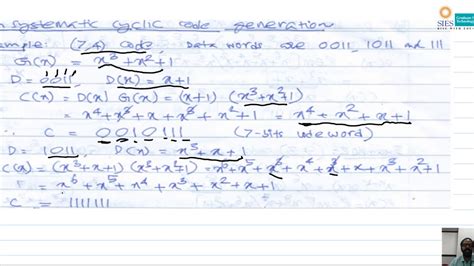 systematic cyclic code generation
SIES
ample: (7,4) code Data words are 0011, 1011 and 111
G(x) = x³+x²+1
D = 0011, D(x) = x+1
C(x) = D(x) G(x) = (x+1) (x³+x²+1)
= x⁴+x³+x+x³+x²+1 = x⁴+x²+x+1
∴ C = 0010111 (7-bits codeword)
D = 1011, D(x) = x³+x+1
C(x) = (x³+x+1) (x³+x²+1) = x⁶+x⁵+x³+x⁴+x³+x+x³+x²+1
= x⁶+x⁵+x⁴+x³+x²+x+1
C = 1111111